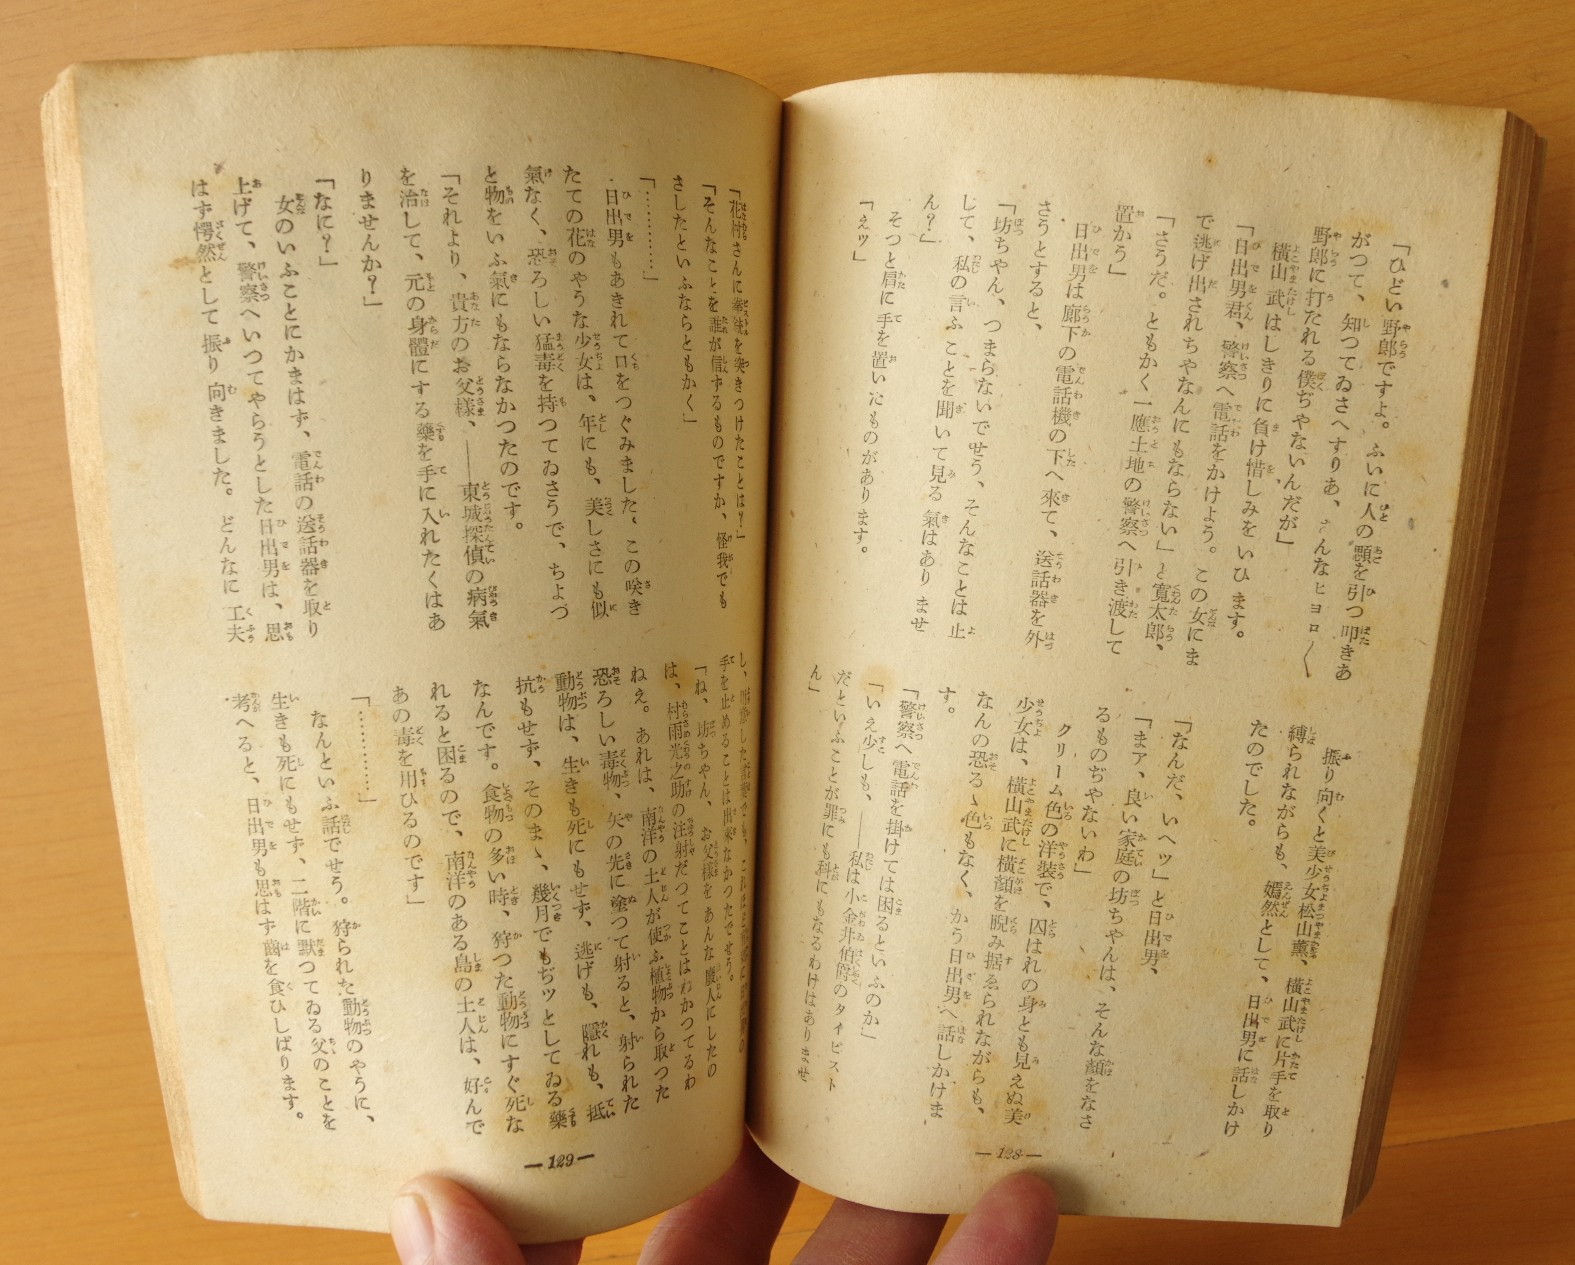 「ひどい野郎ですよ。ふいに人の顎を引つ叩きあ
がつて、知つてゐさへすりあ、こんなヒヨロ〳〵
野郎に打たれる僕ぢやないんだが」
横山武はしきりに負け惜しみをいひます。
「日出男君、警察へ電話をかけよう。この女にま
で逃げ出されちやなんにもならない」と寛太郎、
「さうだ。ともかく一應土地の警察へ引き渡して
置かう」
日出男は廊下の電話機の下へ來て、送話器を外
さうとすると、
「坊ちやん、つまらないでせう、そんなことは止
して、私の言ふことを聞いて見る氣はありませ
ん？」
そつと肩に手を置いたものがあります。
「えッ」
振り向くと美少女松山薫、横山武に片手を取り
縛られながらも、嫣然として、日出男に話しかけ
たのでした。
「なんだ、いへッ」と日出男、
「まア、良い家庭の坊ちやんは、そんな顔をなさ
るものぢやないわ」
クリーム色の洋装で、囚はれの身とも見えぬ美
少女は、横山武に横顔を睨み据ゑられながらも、
なんの恐るゝ色もなく、かう日出男へ話しかけま
す。
「警察へ電話を掛けては困るといふのか」
「いえ少しも、――私は小金井伯爵のタイピスト
だといふことが罪にも科にもなるわけはありませ
ん」
—128—
「花村さんに拳銃を突きつけたことは？」
「そんなことを誰が信ずるものですか、怪我でも
さしたといふならともかく」
「…………」
日出男もあきれて口をつぐみました。この咲き
たての花のやうな少女は、年にも、美しさにも似
氣なく、恐ろしい猛毒を持つてゐさうで、ちよつ
と物をいふ氣にもならなかつたのです。
「それより、貴方のお父様、――東城探偵の病氣
を治して、元の身體にする藥を手に入れたくはあ
りませんか？」
「なに？」
女のいふことにかまはず、電話の送話器を取り
上げて、警察へいつてやらうとした日出男は、思
はず愕然として振り向きました。どんなに工夫
し、用意した言葉でも、これほど
手を止めることは出来なかつたでせう。
「ね、坊ちやん、お父様をあんな癈人にしたの
は、村雨光之助の注射だつてことはわかつてるわ
ねえ。あれは、南洋の土人が使ふ植物から取つた
恐ろしい毒物、矢の先に塗つて射ると、射られた
動物は、生きも死にもせず、逃げも、隠れも、抵
抗もせず、そのまゝ、幾月でもぢッとしてゐる藥
なんです。食物の多い時、狩つた動物にすぐ死な
れると困るので、南洋のある島の土人は、好んで
あの毒を用ひるのです」
「…………」
なんといふ話でせう。狩られた動物のやうに、
生きも死にもせず、二階に默つてゐる父のことを
考へると、日出男も思はず齒を食ひしばります。
—129—